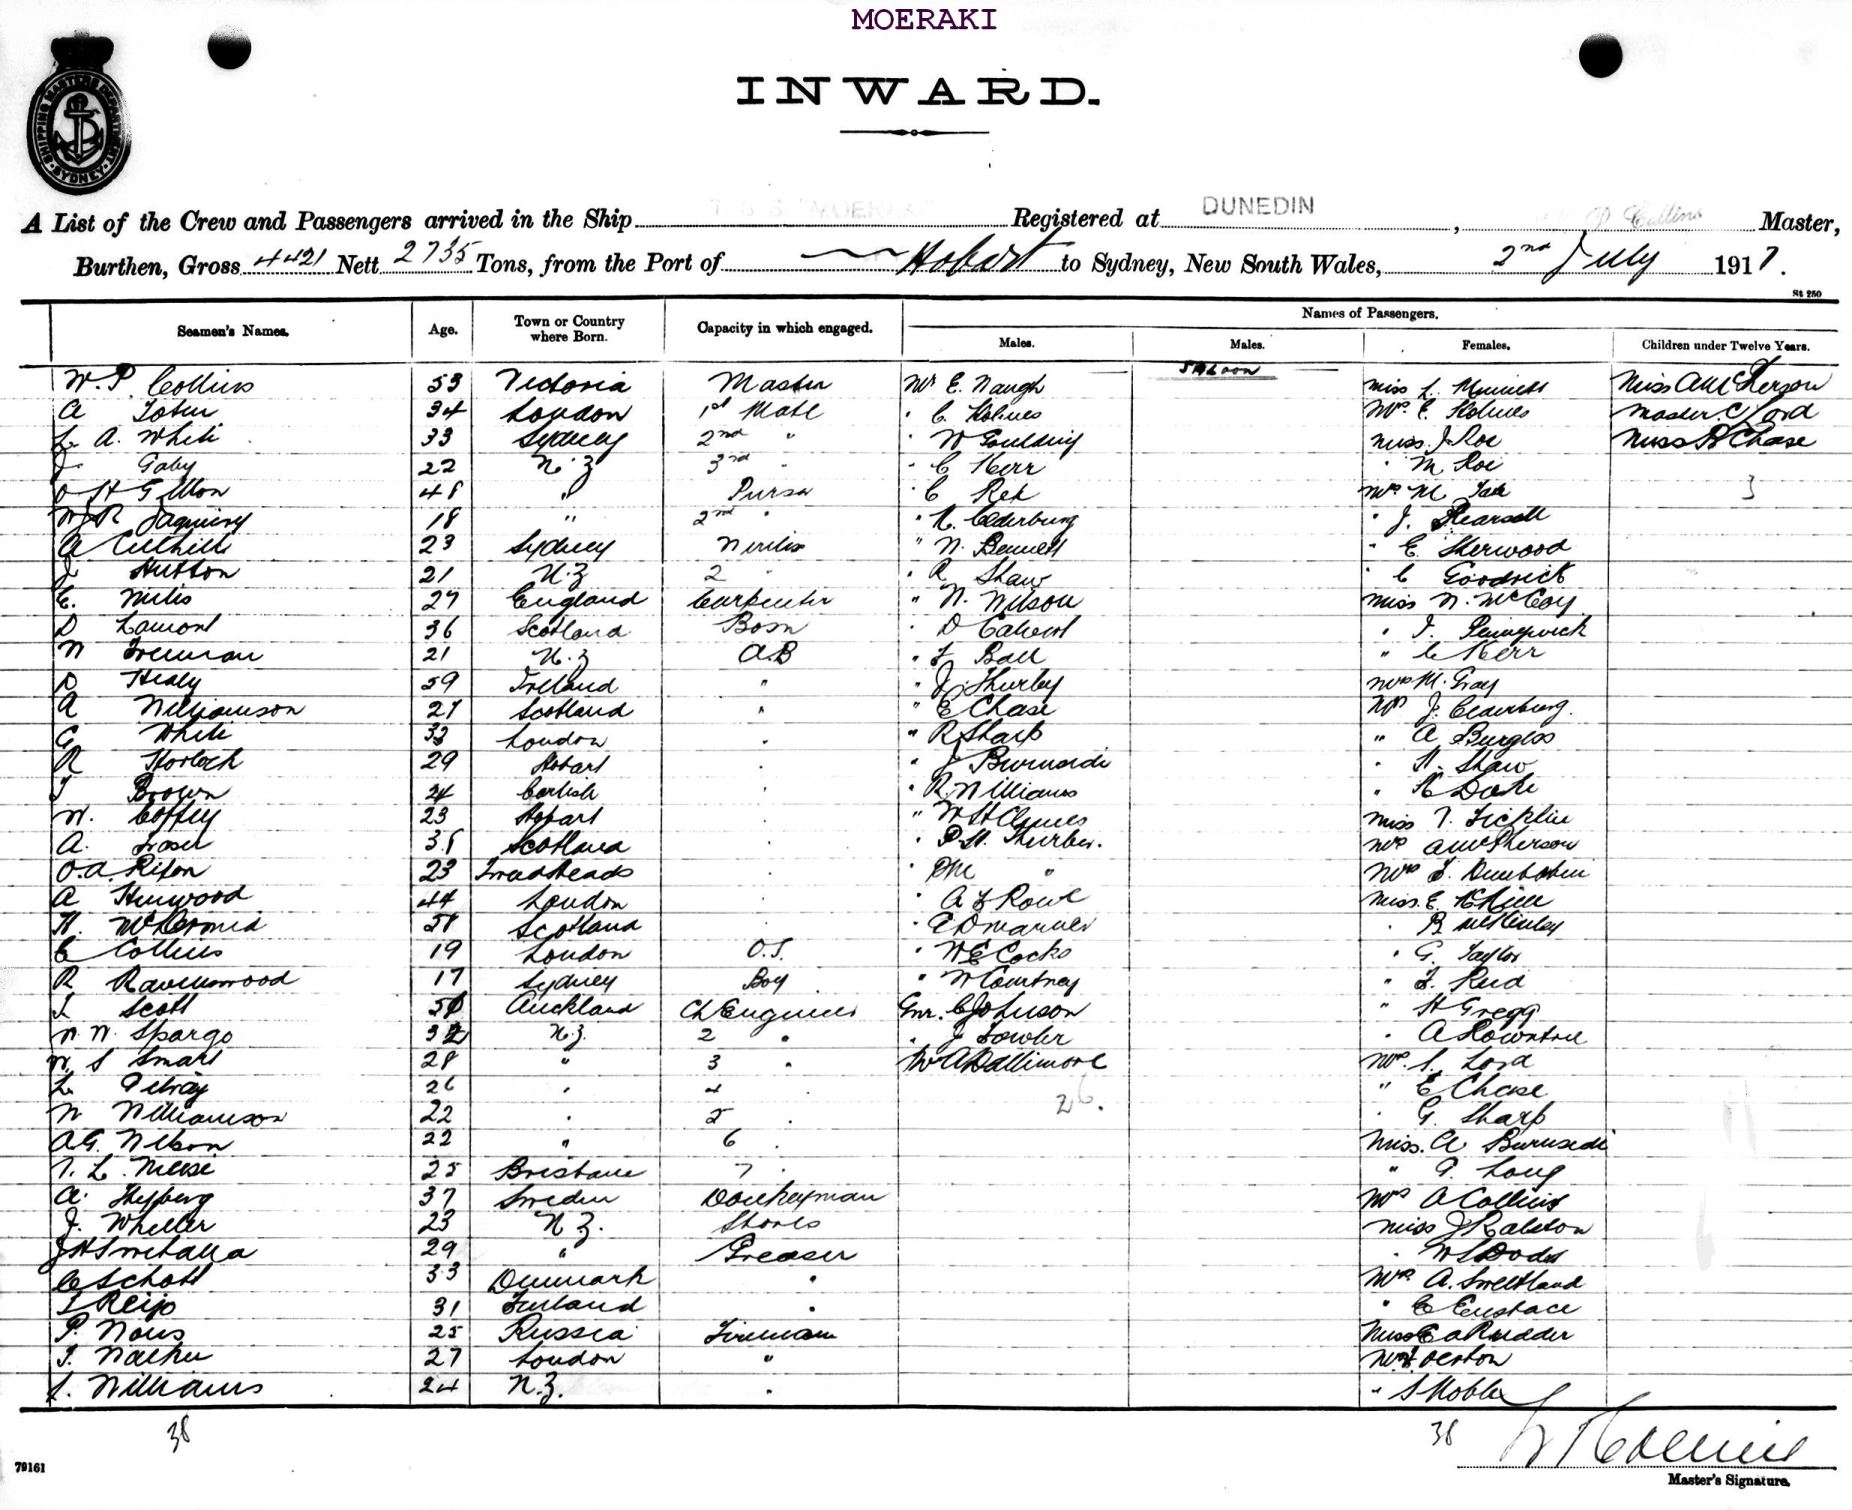 MOERAKI
INWARD.
SHIPPING MASTERS DEPARTMENT SYDNEY
A List of the Crew and Passengers arrived in the Ship T.S.S. "MOERAKI Registered at DUNEDIN, P Collins Master,
Burthen, Gross 4421 Nett 2735 Tons, from the Port of Hobart to Sydney, New South Wales, 2nd July 1917.
St 250
Seamen's Names. Age. Town or Country where Born. Capacity in which engaged. Names of Passengers.
Males. Males. Females. Children under Twelve Years.
Saloon
W. P. Collins 53 Victoria Master Mr E. Waugh Miss L. Miss A McPherson
A 34 London 1st Mate " C Holmes Mrs E. Holmes Master C Lord
L. A. White 33 Sydney 2nd " " W Goulding Miss J. Roe Miss H Chase
J. Gaby 22 N.Z 3rd " " C Kerr " M Roe
48 " Purser " C Rex Mrs M Tate 3
18 " 2nd " " Cederburg " J. Pearsall
A 23 Sydney " N. Bennett " E. Sherwood
J Hutton 21 N.Z 2 " " R Shaw " C Goodrick
E. 27 England Carpenter " N. Wilson Miss N. McCoy
D Lamont 36 Scotland Bosn " D Calvert "
N Freeman 21 N.Z A.B " F Ball " C Kerr
D Healy 59 Ireland " " J. Thurley Mrs M. Gray
A Williamson 27 Scotland " " E Chase Mrs J. Cederburg.
G White 33 London " " R Sharp " A Burgess
R Horlock 29 Hobart " " J Burnside " H. Shaw
T Brown 24 " " R. Williams "
W. Coffey 23 Hobart " " W H Miss
A. Fraser Scotland " " P. H. Thurber. Mrs A McPherson
O. A. Rixon 23 " " " Mrs
A Henwood 44 London " " A F Rowe Miss E.
H. Scotland " " " B McKinley
C Collins 19 London O.S. " W E Cocks " G. Taylor
R Ravenswood 17 Sydney Boy " W Courtney " F. Reid
Scott Auckland Ch Engineer Gnr. C Johnson " H Gregg
W. N. Spargo N.Z. 2 " " J Fowler " A Rowntree
W. S Smart 28 " 3 " Mr A Dallimore Mrs S. Lord
L 26 " 4 " E Chase
W Williamson 22 " 5 " 26. " G. Sharp
A G. Nelson 22 " 6 " Miss A Burnside
T. L. 25 Brisbane 7 " " Long
A. 37 Sweden Donkeyman Mrs A Collins
J. Wheeler 23 N.Z. Stores Miss J Ralston
J H 29 " Greaser "
C Schott 33 Denmark " Mrs A. Sweetland
Reijo 31 Finland " " E Eustace
P. 25 Russia Fireman Miss E A Rudder
T. Walker 27 London "
S. Williams 24 N.Z. " "
38 38
79161
Master's Signature.